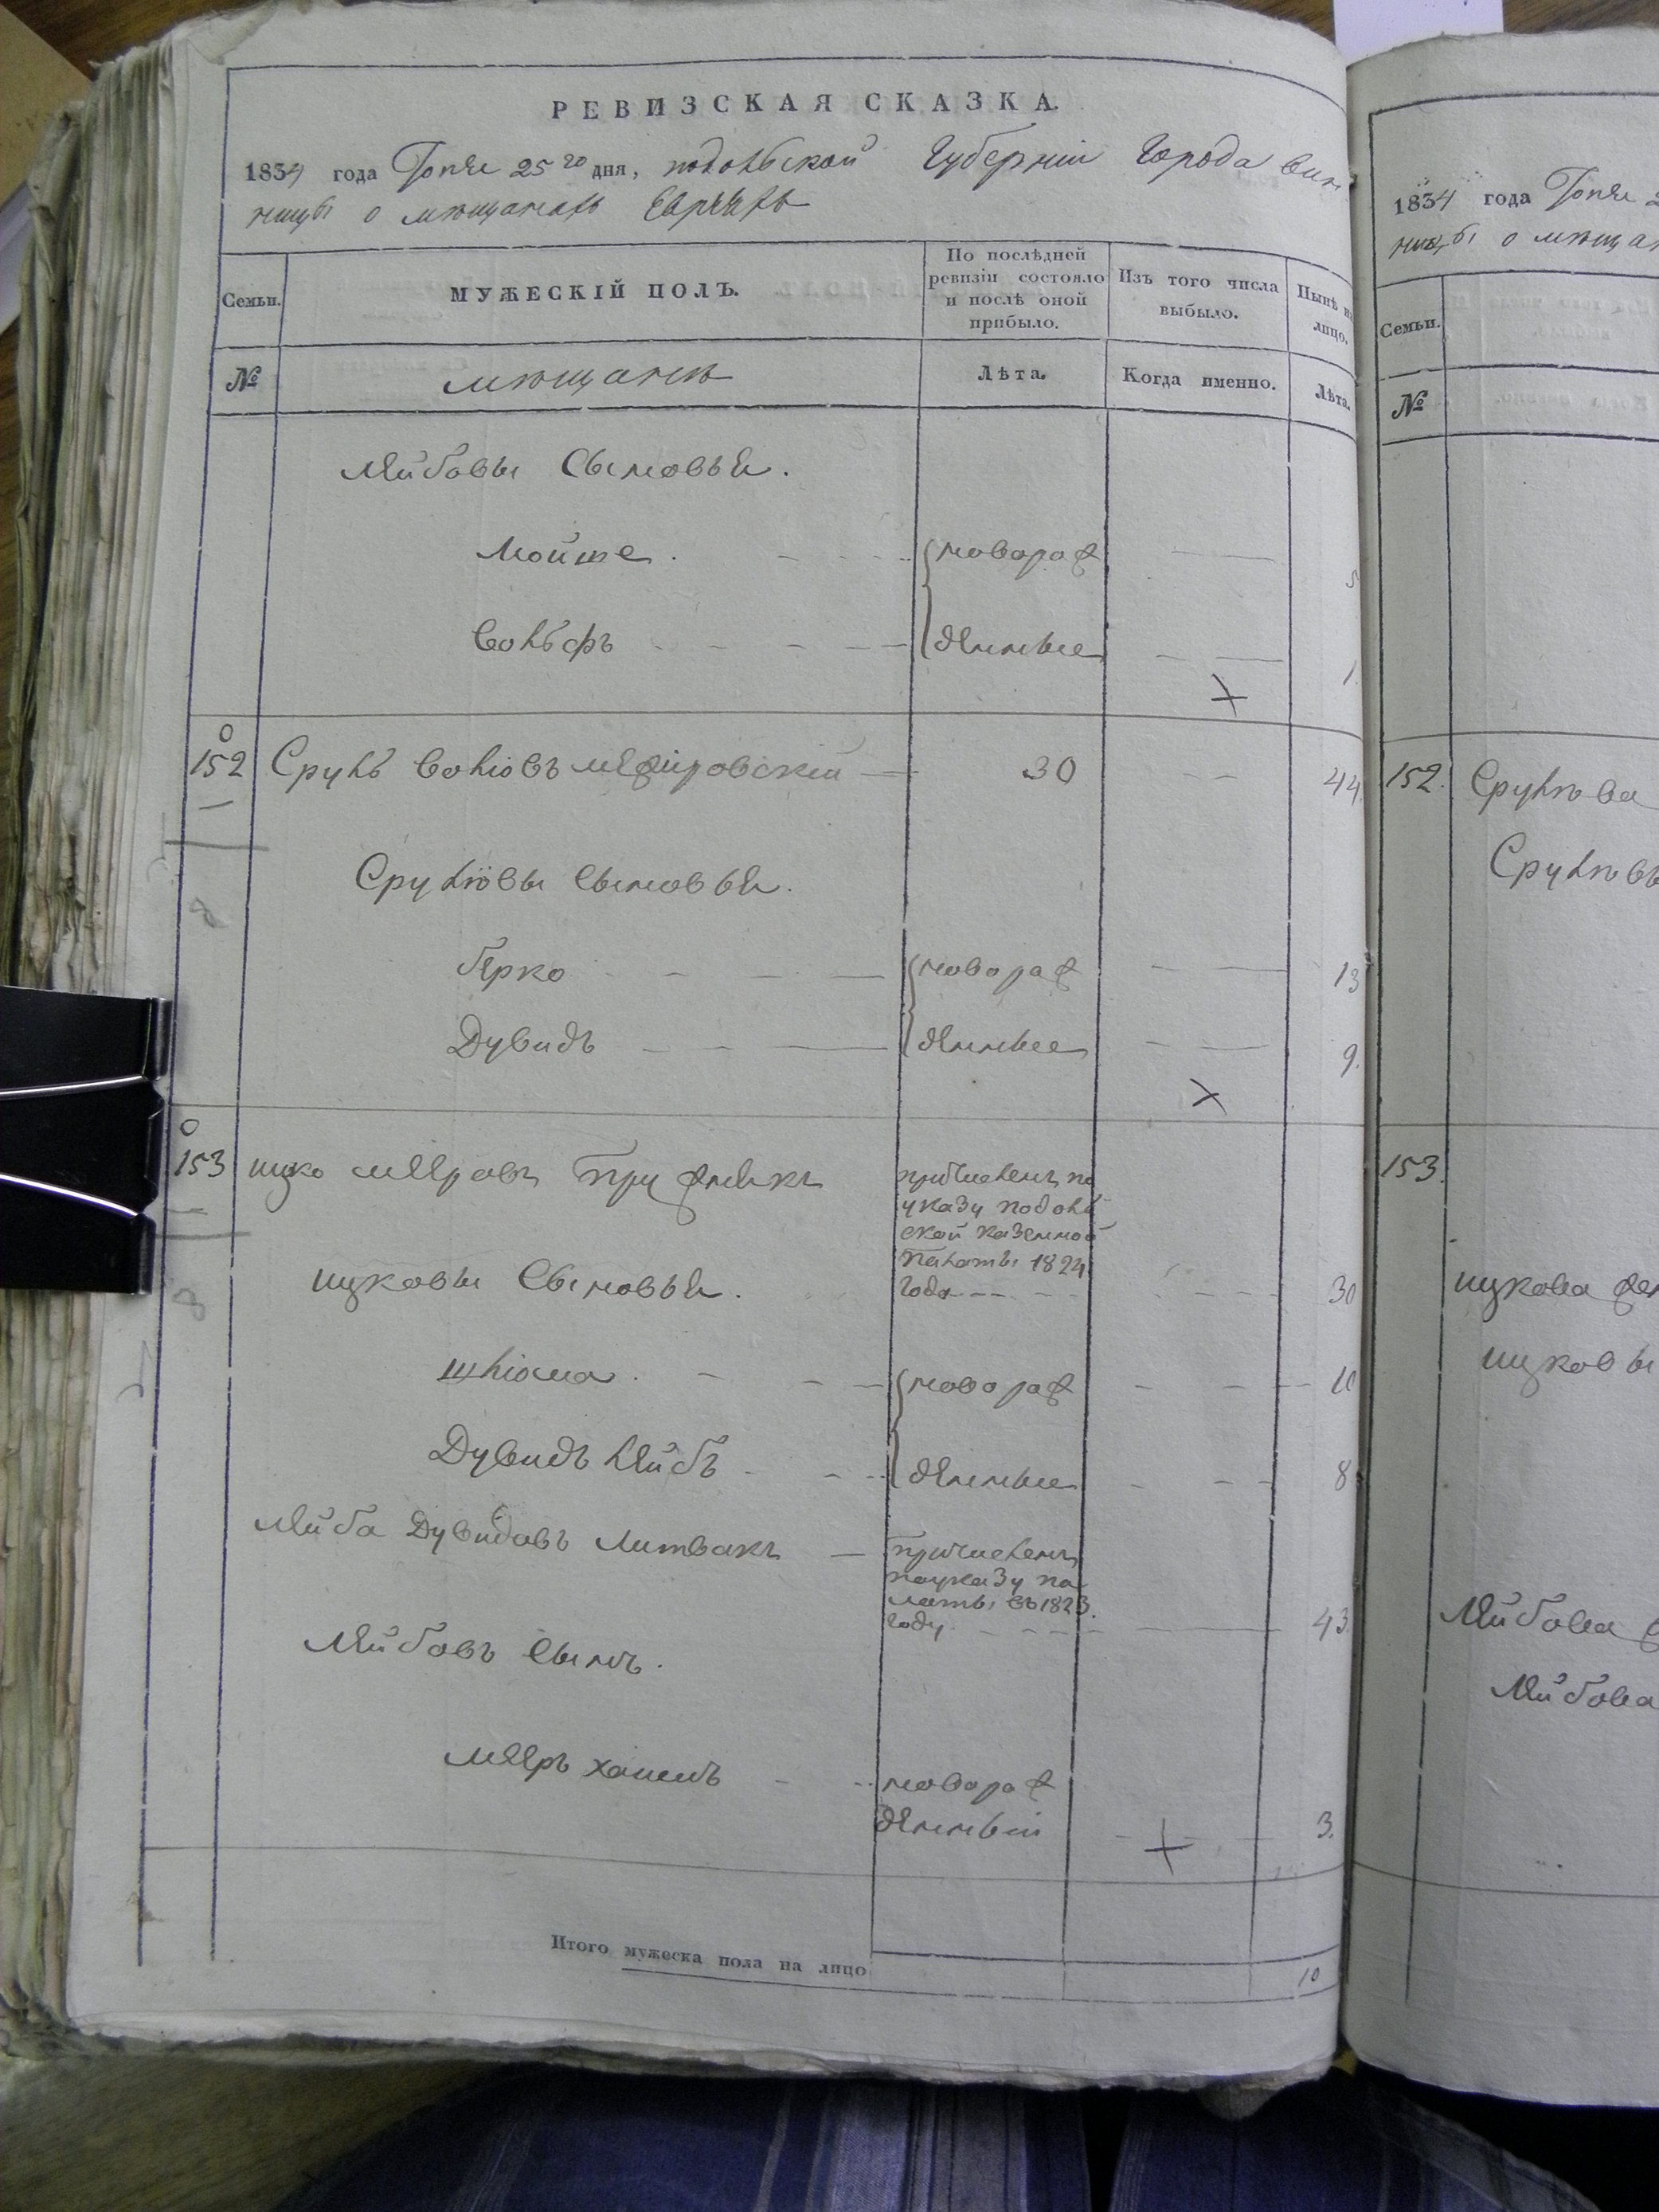 РЕВИЗСКАЯ СКАЗКА.
1834 года 25го дня, подольской Губерніи Города Вин
ницы о мѣщанахъ Евреяхъ
Семьи.
МУЖЕСКІЙ ПОЛЪ.
По послѣдней
ревизіи состояло
и послѣ оной
прибыло.
Изъ того числа
выбыло.
Нынѣ на
лицо.
№
мѣщане
Лѣта.
Когда именно.
Лѣта.
Лейбовы Сыновья.
Мойше новорож 5
Вольфъ денные 1
152 Сруль Вольовъ Межировскій 30 44
Срулiовы Сыновья.
Берко новорож 13
Дувидъ денные 9.
153 ицко Мееровъ
причисленъ по
указу подоль
ской казенной
палаты 1824
года 30
ицковы Сыновья.
шліома новорож 10
Дувидъ Лейбъ денные 8
Лейба Дувидовъ Литвакъ
причисленъ
поуказу па
латы въ 1823.
году 43.
Лейбовъ Сынъ.
Мееръ хаимъ новорож
денный 3.
Итого мужеска пола на лицо 10
1834 года
ницы о мѣща
Семьи.
№
152.
153.
ицкова
ицковы
Лейбова
Лейбова